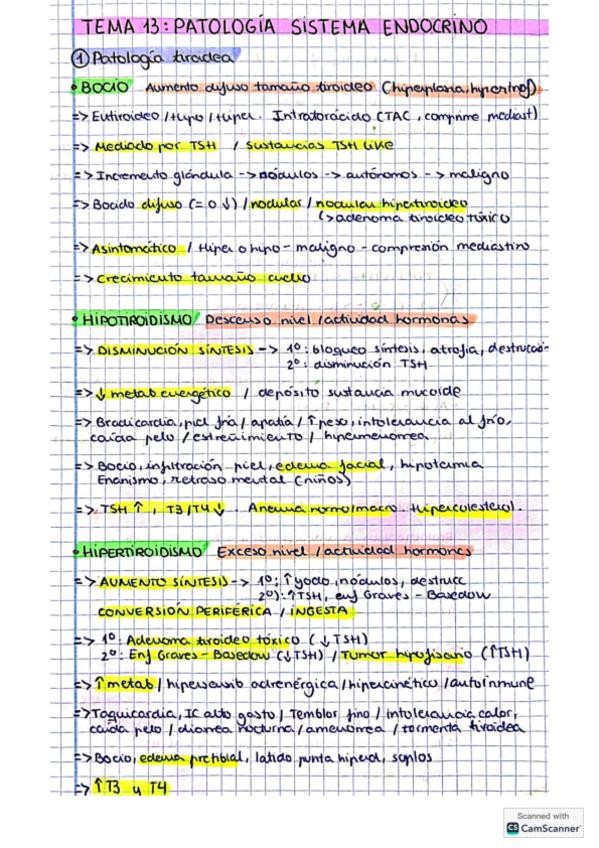 TEMA 13: PATOLOGÍA SISTEMA ENDOCRINO
① Patología tiroidea
• BOCIO Aumento difuso tamaño tiroideo (hiperplasia, hipertrof).
=> Eutiroideo / Hipo / Hiper. Intratorácido (TAC, comprime mediast)
=> Mediado por TSH / Sustancias TSH like
=> Incremento glándula -> nódulos -> autónomos -> maligno
=> Bocido difuso (= o ↓) / nodular / nodular hipertiroideo
↳ adenoma tiroideo tóxico
=> Asintomático / Hiper o hipo - maligno - compresión mediastino
=> Crecimiento tamaño cuello
• HIPOTIROIDISMO Descenso nivel / actividad hormonas
=> DISMINUCIÓN SÍNTESIS -> 1º: bloqueo síntesis, atrofia, destrucción
2º: disminución TSH
=> ↓ metab energético / depósito sustancia mucoide
=> Bradicardia, piel fría / apatía / ↑ peso, intolerancia al frío,
caída pelo / estreñimiento / hipermenorrea
=> Bocio, infiltración piel, edema facial, hipotermia
Enanismo, retraso mental (niños)
=> TSH ↑, T3/T4 ↓. Anemia normo/macro. Hipercolesterol.
• HIPERTIROIDISMO Exceso nivel / actividad hormonas
=> AUMENTO SÍNTESIS -> 1º: ↑ yodo, nódulos, destrucc
2º): ↑TSH, enf Graves - Basedow
CONVERSIÓN PERIFÉRICA / INGESTA
=> 1º: Adenoma tiroideo tóxico (↓TSH)
2º: Enf Graves - Basedow (↓TSH) / Tumor hipofisario (↑TSH)
=> ↑ metab / hipersensib adrenérgica / hipercinético / autoinmune
=> Taquicardia, IC alto gasto / Temblor fino / intolerancia calor,
caída pelo / diarrea nocturna / amenorrea / tormenta tiroidea
=> Bocio, edema pretibial, latido punta hiperd, soplos
=> ↑ T3 y T4
Scanned with
CS CamScanner